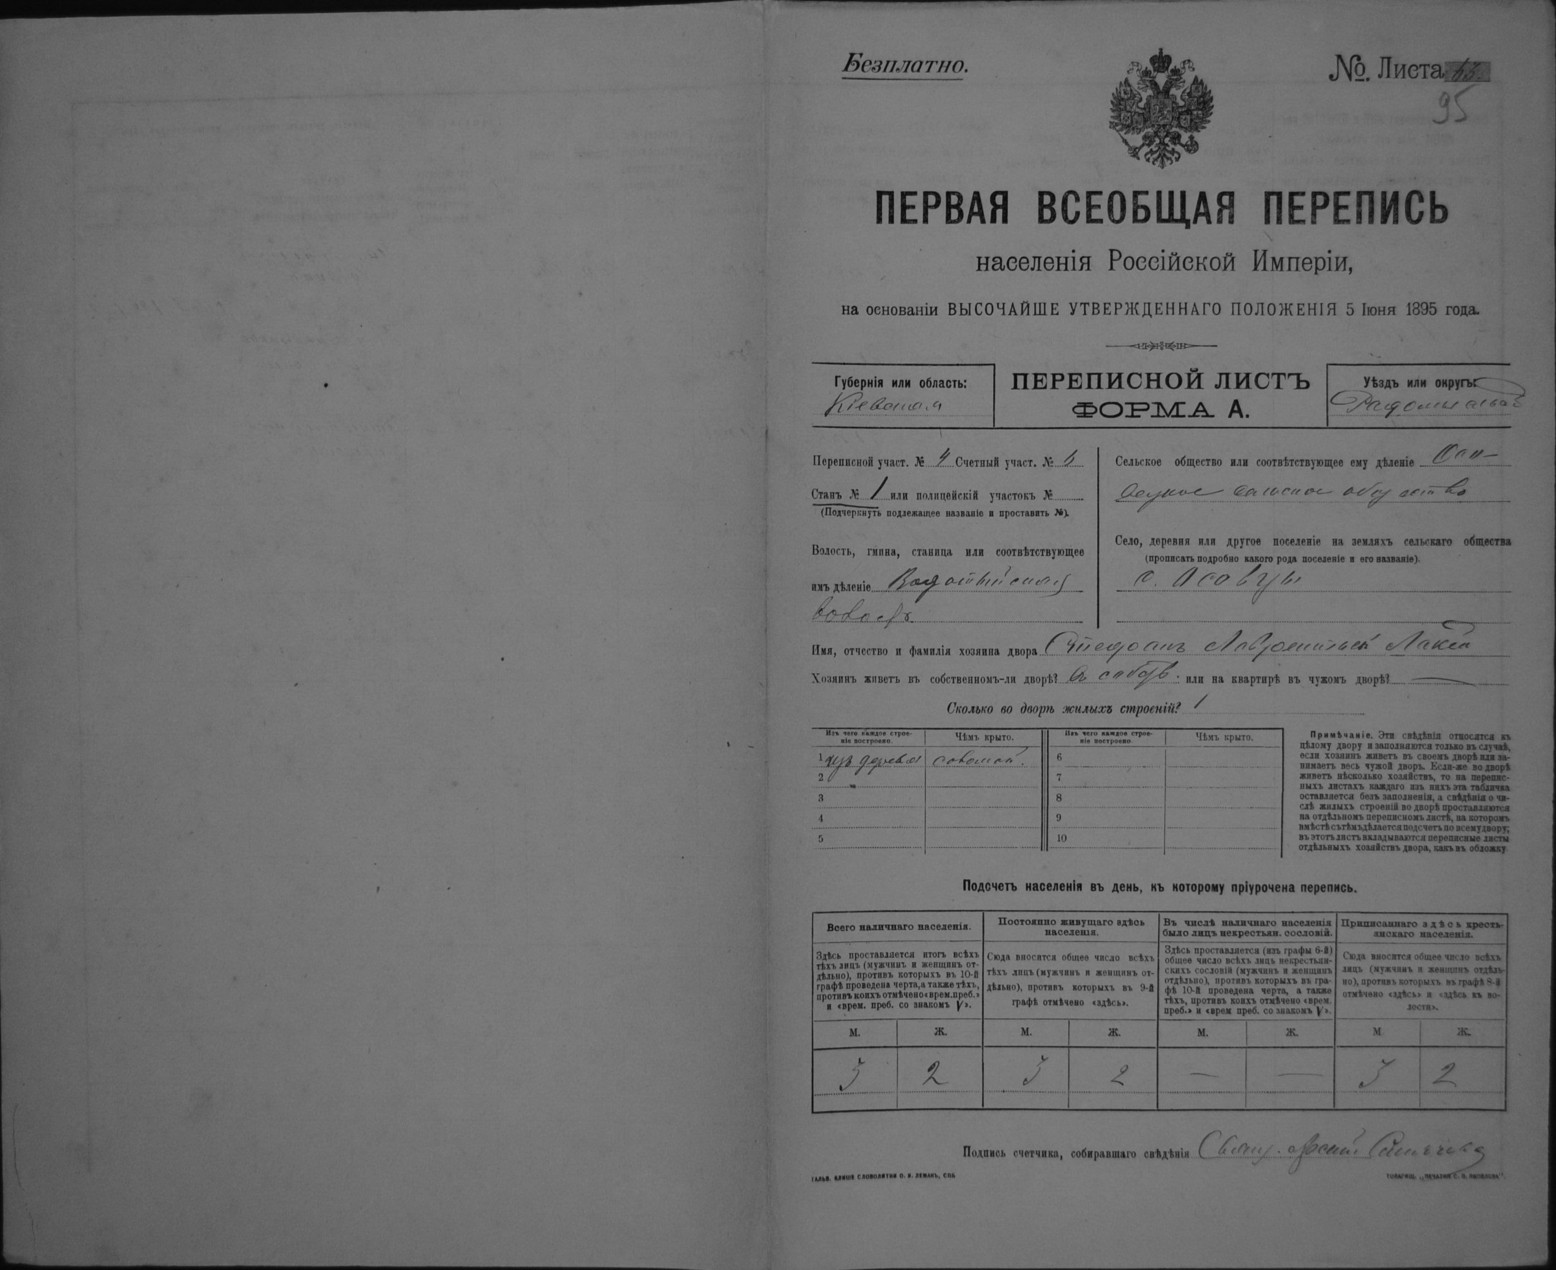 Безплатно.
№. Листа
95
ПЕРВАЯ ВСЕОБЩАЯ ПЕРЕПИСЬ
населенія Россійской Имперіи,
на основаніи ВЫСОЧАЙШЕ УТВЕРЖДЕННАГО ПОЛОЖЕНІЯ 5 Іюня 1895 года.
Губернія или область:
Кіевская
ПЕРЕПИСНОЙ ЛИСТЪ
ФОРМА А.
Уѣздъ или округъ:
Радомысльскій
Переписной участ. № 4 Счетный участ. №
Станъ № 1 или полицейскій участокъ №
(Подчеркнуть подлежащее названіе и проставить №).
Волость, гмина, станица или соотвѣтствующее
имъ дѣленіе Водотыйская
волость
Сельское общество или соотвѣтствующее ему дѣленіе
сельское общество
Село, деревня или другое поселеніе на земляхъ сельскаго общества
(прописать подробно какого рода поселеніе и его названіе).
с. Осовцы
Имя, отчество и фамилія хозяина двора Стефанъ Лаврентьев
Хозяинъ живетъ въ собственномъ-ли дворѣ? въ собств. или на квартирѣ въ чужомъ дворѣ? —
Сколько во дворѣ жилыхъ строеній? 1
Изъ чего каждое строеніе построено.
Чѣмъ крыто.
Изъ чего каждое строеніе построено
Чѣмъ крыто.
1 изъ дерева соломой.
2
3
4
5
6
7
8
9
10
Примѣчаніе. Эти свѣдѣнія относятся къ
цѣлому двору и заполняются только въ случаѣ,
если хозяинъ живетъ въ своемъ дворѣ или за-
нимаетъ весь чужой дворъ. Если-же во дворѣ
живетъ нѣсколько хозяйствъ, то на перепис-
ныхъ листахъ каждаго изъ нихъ эта табличка
оставляется безъ заполненія, а свѣдѣнія о чи-
слѣ жилыхъ строеній во дворѣ проставляются
на отдѣльномъ переписномъ листѣ, на которомъ
вмѣстѣ съ тѣмъ дѣлается подсчетъ по всему двору;
въ этотъ листъ вкладываются переписные листы
отдѣльныхъ хозяйствъ двора, какъ въ обложку.
Подсчетъ населенія въ день, къ которому пріурочена перепись.
Всего наличнаго населенія.
Здѣсь проставляется итогъ всѣхъ
тѣхъ лицъ (мужчинъ и женщинъ от-
дѣльно), противъ которыхъ въ 10-й
графѣ проведена черта, а также тѣхъ,
противъ коихъ отмѣчено «врем. преб.»
и «врем. преб. со знакомъ V».
Постоянно живущаго здѣсь
населенія.
Сюда вносится общее число всѣхъ
тѣхъ лицъ (мужчинъ и женщинъ от-
дѣльно), противъ которыхъ въ 9-й
графѣ отмѣчено «здѣсь».
Въ числѣ наличнаго населенія
было лицъ некрестьян. сословій.
Здѣсь проставляется (изъ графы 6-й)
общее число всѣхъ лицъ некрестьян-
скихъ сословій (мужчинъ и женщинъ
отдѣльно), противъ которыхъ въ гра-
фѣ 10-й проведена черта, а также
тѣхъ, противъ коихъ отмѣчено «врем.
преб.» и «врем преб. со знакомъ V».
Приписаннаго здѣсь кресть-
янскаго населенія.
Сюда вносится общее число всѣхъ
лицъ (мужчинъ и женщинъ отдѣль-
но), противъ которыхъ въ графѣ 8-й
отмѣчено «здѣсь» и «здѣсь въ во-
лости».
М. Ж. М. Ж. М. Ж. М Ж.
3 2 3 2 — — 3 2
Подпись счетчика, собиравшаго свѣдѣнія
ГАЛЬВ. КЛИШЕ СЛОВОЛИТНИ О. И. ЛЕМАНЪ, СПБ